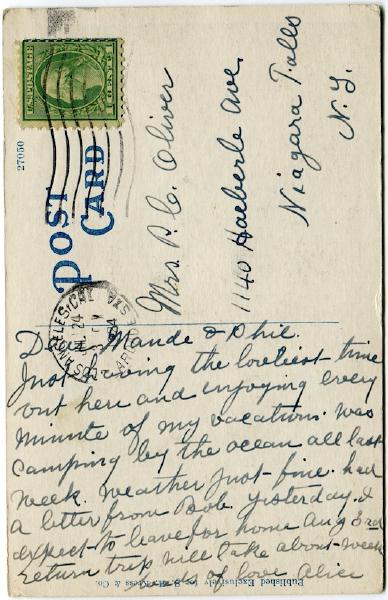 U.S. POSTAGE
1 CENT 1
27050
POST
CARD
LOS ANGELES, CAL.
24
ARCADE STA.
Mrs. P. C. Oliver
1140 Haeberle Ave.
Niagara Falls
N. Y.
Dear Maude & Phil.
Just having the loveliest time
out here and enjoying every
minute of my vacation. Was
camping by the ocean all last
week. weather just fine. had
a letter from Bob yesterday. I
expect to leave for home Aug 3rd
return trip will take about week
of love Alice
Published Exclusively by S. H. Kress & Co.